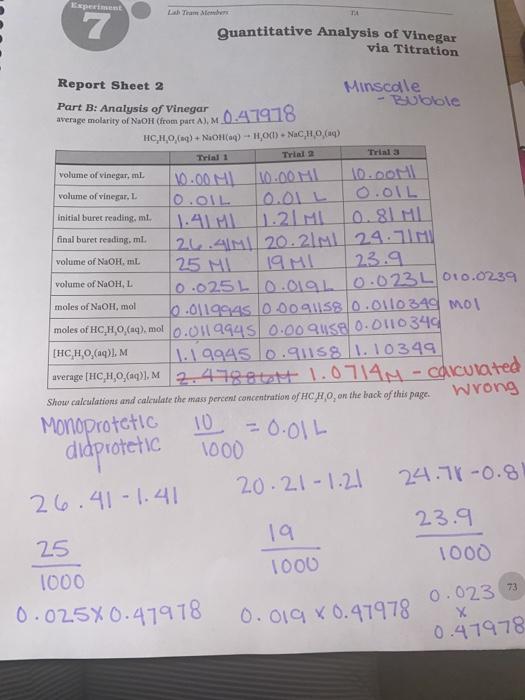 Experiment
7
Lab Team Members
TA
Quantitative Analysis of Vinegar
via Titration
Report Sheet 2
Minscale
- Bubble
Part B: Analysis of Vinegar
average molarity of NaOH (from part A), M 0.47978
HC₂H₃O₂(aq) + NaOH(aq) → H₂O(l) + NaC₂H₃O₂(aq)
Trial 1 Trial 2 Trial 3
volume of vinegar, mL 10.00 Ml 10.00 Ml 10.00Ml
volume of vinegar, L 0.01L 0.01 L 0.01L
initial buret reading, mL 1.41 Ml 1.21 Ml 0.81 Ml
final buret reading, mL 26.41Ml 20.21Ml 24.71Ml
volume of NaOH, mL 25 Ml 19 Ml 23.9
volume of NaOH, L 0.025L 0.019L 0.023L 0r0.0239
moles of NaOH, mol 0.0119945 0.0091158 0.0110349 mol
moles of HC₂H₃O₂(aq), mol 0.0119945 0.0091158 0.0110349
[HC₂H₃O₂(aq)], M 1.19945 0.91158 1.10349
average [HC₂H₃O₂(aq)], M 1.0714M - calculated
wrong
Show calculations and calculate the mass percent concentration of HC₂H₃O₂ on the back of this page.
Monoprotetic 10 = 0.01 L
diaprotetic 1000
26.41-1.41 20.21-1.21 24.71-0.81
25 19 23.9
1000 1000 1000
0.025X0.47978 0.019 x 0.47978 0.023
x
0.47978
73